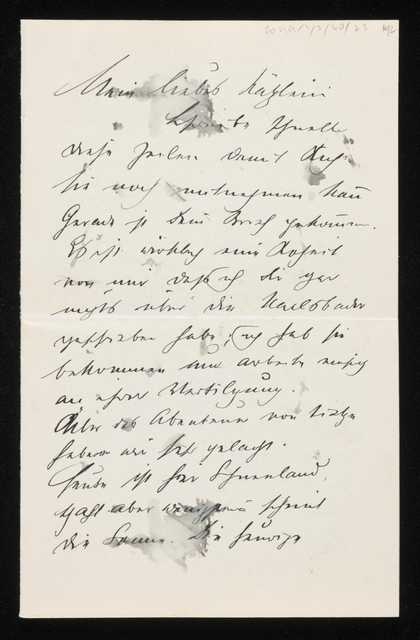 Mein liebes Käzlein
Schreibe schnell
diese Zeilen damit
sie noch mitnehmen kann
Gerade ist dein Brief gekommen.
Es ist wirklich eine
von mir dass ich dir gar
nichts über die Karlsbader
geschrieben habe, ich hab sie
bekommen und arbeite
an ihrer Vertilgung.
Über das Abenteuer von
haben wir sehr gelacht.
Heute ist hier Schneeland,
jetzt aber wenigstens scheint
die Sonne. Die heurige